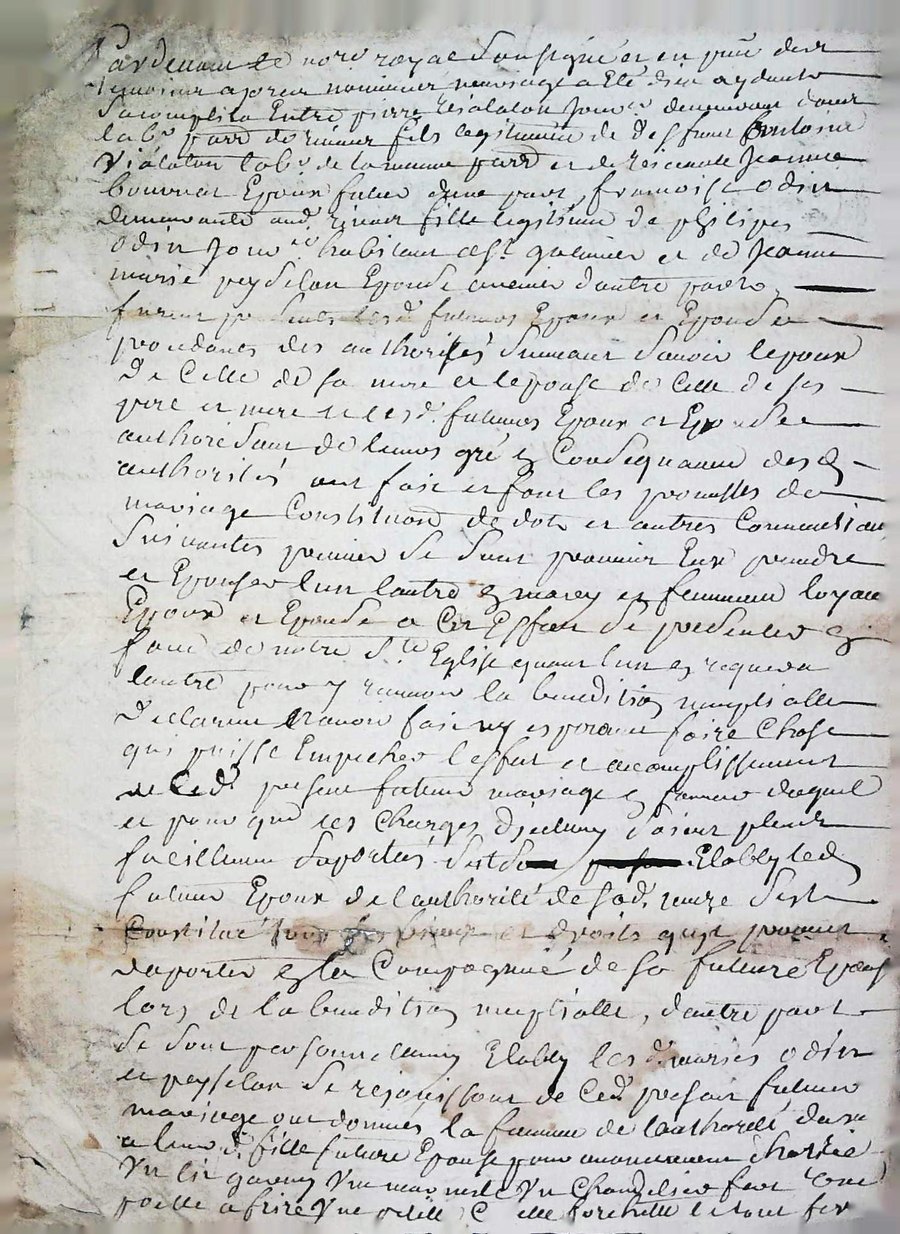 Pardevant le no.re royal soussigné et en pnce des
temoins apres nommés mariage a Eté dieu aydant
sacomplira Entre pierre Vialaton Jour.r demeurant
lab.r parr. de fils legitime de deffunt
Vialaton lab.r de la meme parr. et de vivante Jeanne
Epoux futur dune part, françoise odin
demeurante aud. fille legitime de philipes
odin Jour.r habitant a St galmier et de Jeanne
marie peyselon Epouse avenir dautre part,
furent presents lesd. futurs Epoux et Epouse
procedants des authorités suivant savoir lepoux
de Celle de sa mere et lepouse de Celle de ses
pere et mere et lesd. futurs Epoux et Epouse
authorisant de leurs gré en Consequance desd.
authorités ont fait et font les promesses de
mariage Constitution de dot et autres Conventions
suivantes premier se sont promis Eux prendre
et Epouser lun lautre en mary et femme loyaux
Epoux et Epouse a Cet Effet se presenter en
face de notre Ste Eglise quant lun en requerra
lautre pour y recevoir la benediction nuptialle
declarant navoir fait ny esperant faire Chose
qui puisse Empecher leffet et acomplissement
de Ced. present futur mariage en faveur duquel
et pour que les Charges diceluy soient plus
facillement suportés sest Etably led.
futur Epoux de lauthorité de sad. mere sest
Constitué tous ses biens et droits quil promet
daporter en la Compagnie de sa future Epouse
lors de la benediction nuptialle, dautre part
se sont personnellement Etably lesd. mariés odin
et peyselon se rejouissant de Ced. present futur
mariage ont donnés la femme de lauthorité de son
a leur d. fille future Epouse pour
Vn lit garny Vne marmite Vn Chandelier fer
poelle a frire Vne le tout fer